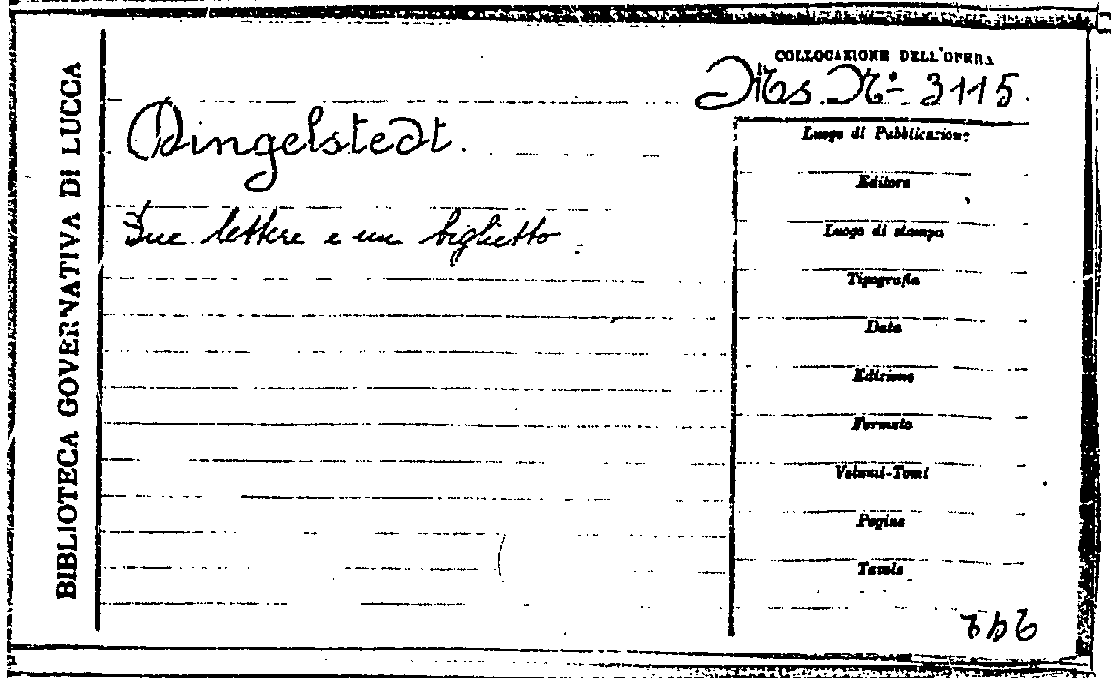 BIBLIOTECA GOVERNATIVA DI LUCCA
COLLOCAZIONE DELL'OPERA
Mss. N.º 3115.
Dingelstedt.
Due lettere e un biglietto.
Luogo di Pubblicazione
Editore
Luogo di stampa
Tipografia
Data
Edizione
Formato
Volumi-Tomi
Pagine
Tavole